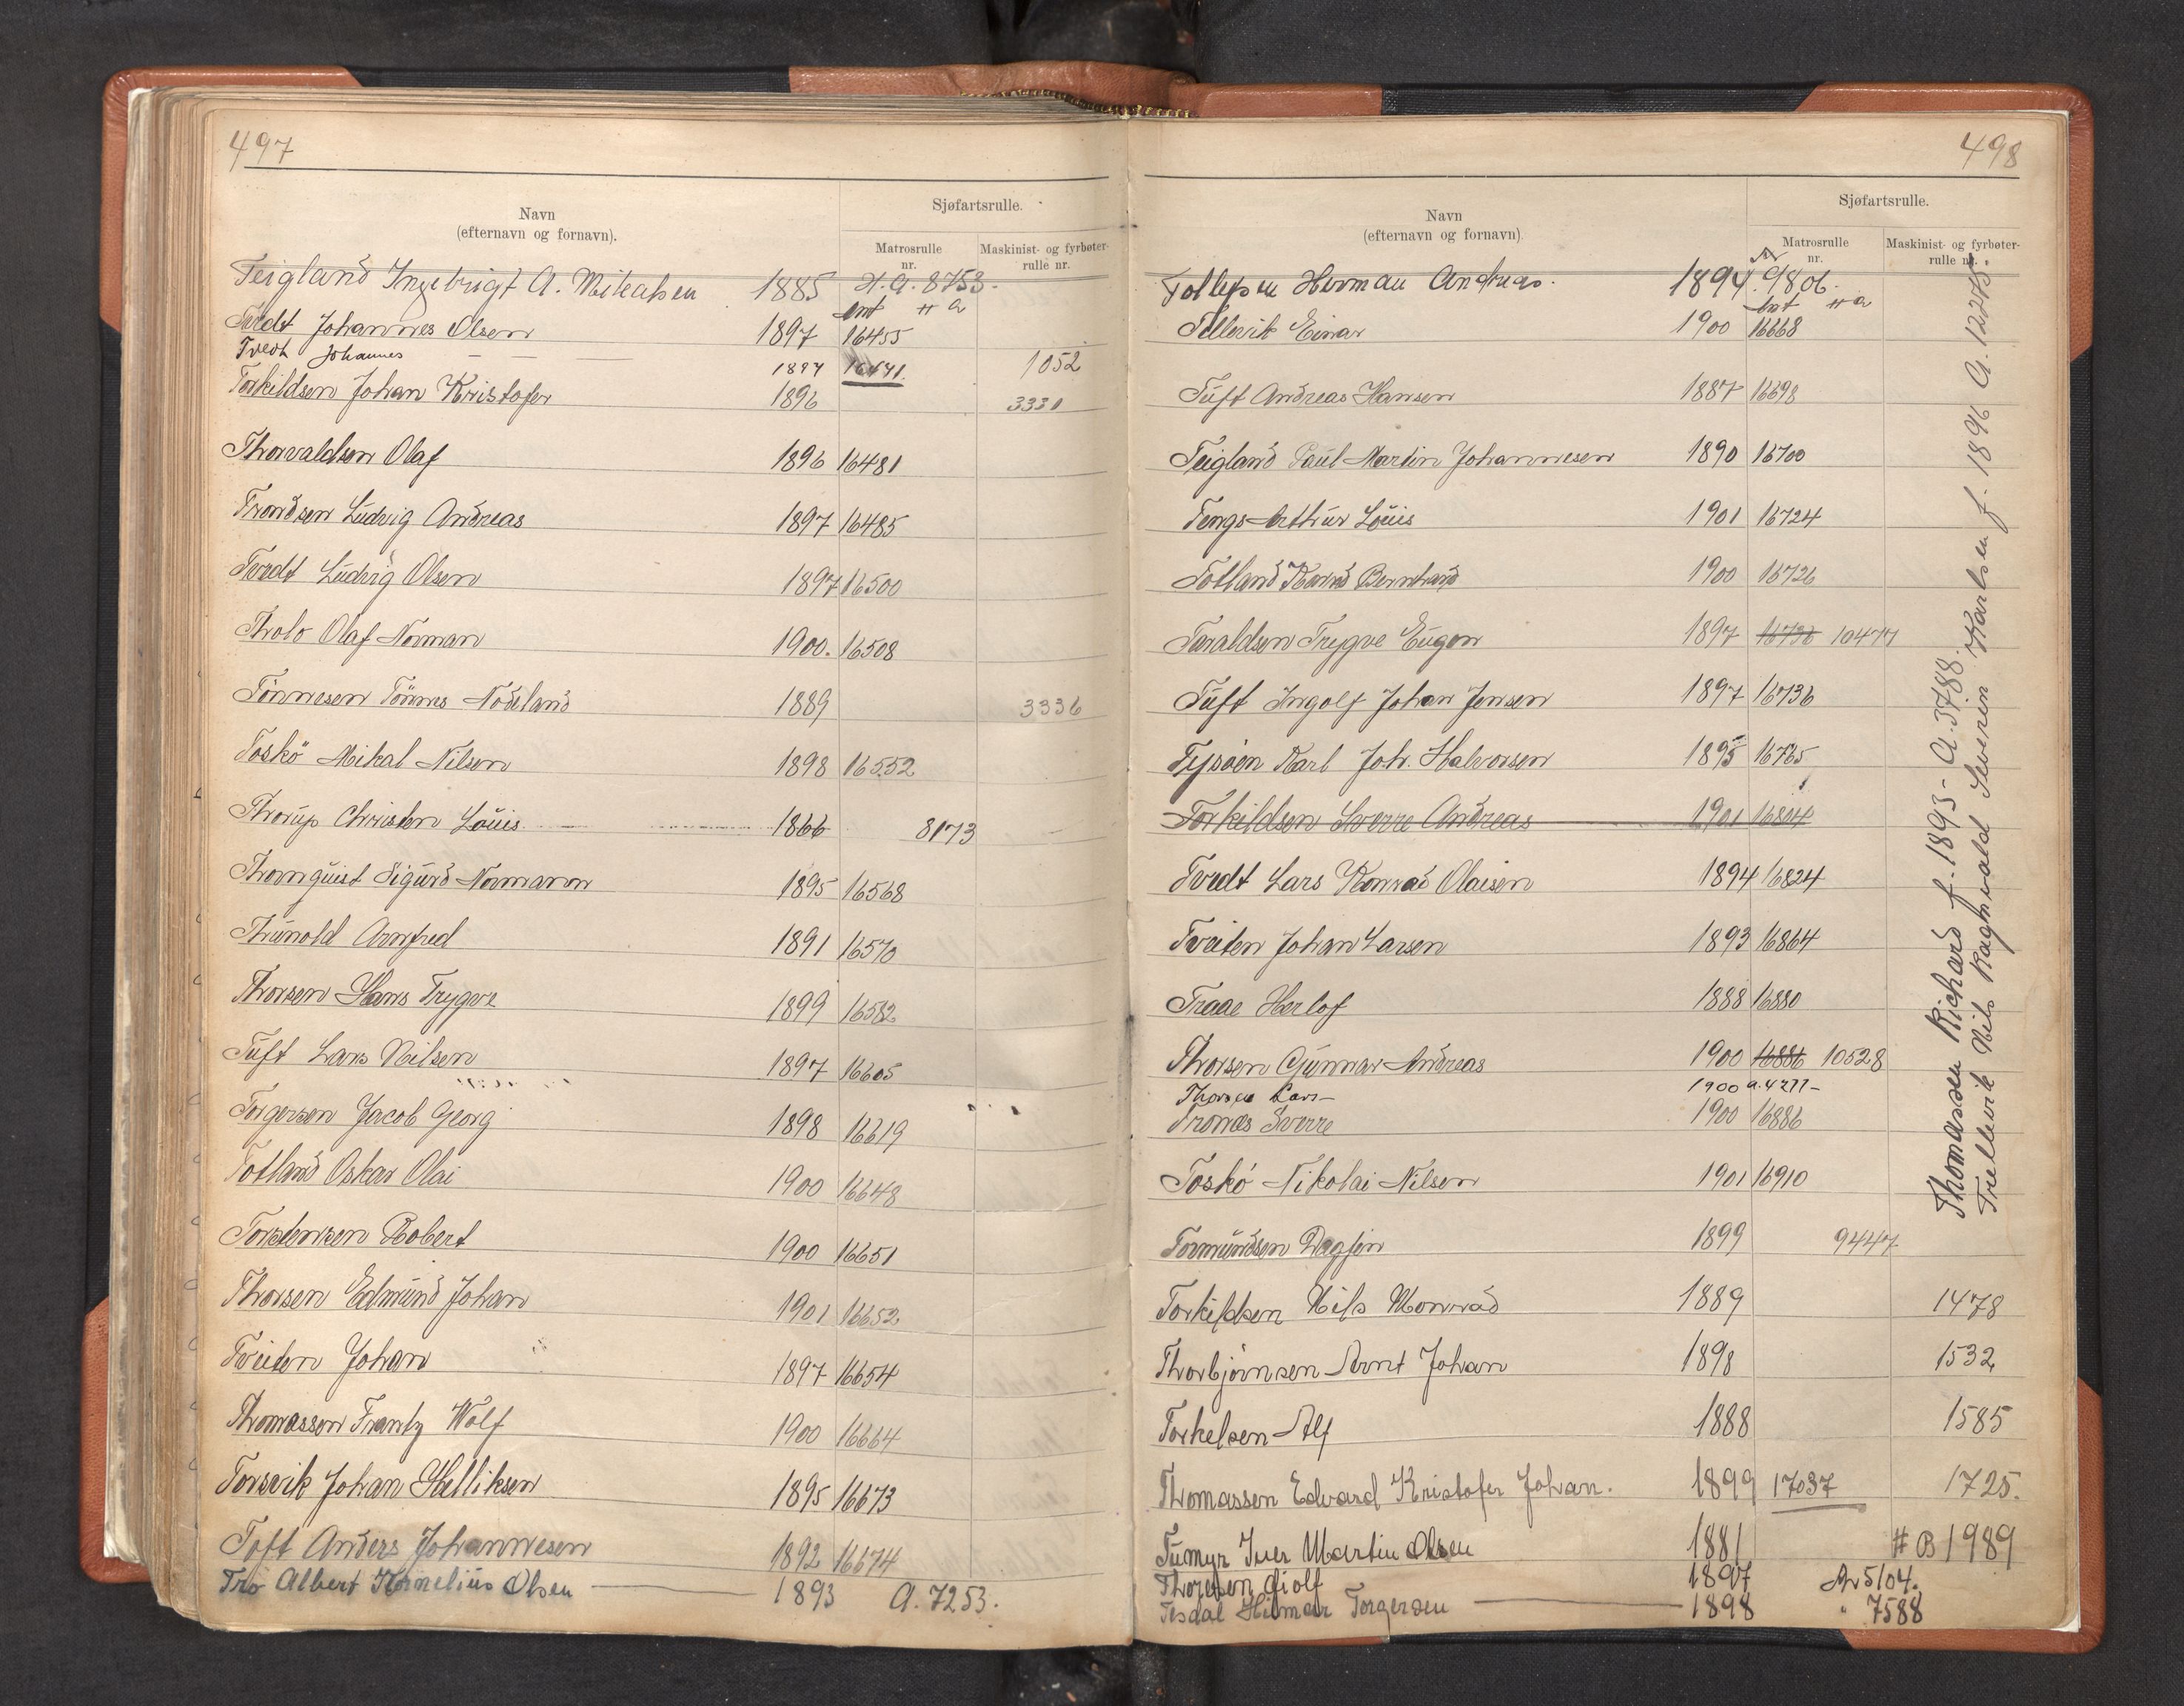 497
Sjøfartsrulle.
Navn
(efternavn og fornavn).
Matrosrulle
nr.
Maskinist- og fyrbøter-
rulle nr.
Teigland Ingebrigt A. Mikalsen 1885 H.A. 8753.
ent H a
Tvedt Johannes Olsen 1897 16455
Tvedt Johannes — — 1897 16471. 1052
Torkildsen Johan Kristofer 1896 3331
Thorvaldsen Olaf 1896 16481
Trondsen Ludvig Andreas 1897 16485
Tvedt Ludvig Olsen 1897 16500
Olaf Norman 1900. 16508
Tönnesen Tönnes Nodeland 1889 3336
Toskö Mikal Nilsen 1898 16552
Thorup Christen Louis 1866 8173
Thornquist Sigurd Normann 1895 16568
Thunold Arnfred 1891 16570
Thorsen Hans Trygve 1899 16582
Tuft Lars Nilsen 1897 16605
Torgersen Jacob Georg 1898 16619
Totland Oskar Olai 1900 16648
Torstensen Robert 1900 16651
Thorsen Edmund Johan 1901 16652
Tveiten Johan 1897 16654
Thomassen Frantz Wolf 1900 16664
Torsvik Johan Helliksen 1895 16673
Toft Anders Johannesen 1892 16674
Tro Albert Kornelius Olsen — 1893 A. 7253.
498
Sjøfartsrulle.
Navn
(efternavn og fornavn).
Matrosrulle
nr.
Maskinist- og fyrbøter-
rulle nr.
Tollefsen Herman Andreas. 1894. Ar 9806.
ent H a
Tellevik Einar 1900 16668
Tuft Andreas Hansen 1887 16698
Teigland Paul Martin Johannesen 1890 16700
Tengs Arthur Louis 1901 16724
Totland Konrad Bernhard 1900 16726
Taraldsen Trygve Eugen 1897 16736 10477
Tuft Ingolf Johan Jensen 1897 16736
Tysöen Karl Joh. Halvorsen 1895 16765
Torkildsen Sverre Andreas 1901 16804
Tvedt Lars Konrad Olaisen 1894 16824
Tveiten Johan Larsen 1893 16864
Traae Herlof 1888 16880
Thorsen Gunnar Andreas 1900 16886 10528
Thorsen Lars — 1900 a. 4277 —
Tronæs Sverre 1900 16886
Toskö Nikolai Nilsen 1901 16910
Tormundsen Dagfin 1899 9447
Torkildsen Nils Monrad 1889 1478
Thorbjörnsen Arnt Johan 1898 1532
Torkelsen Alf 1888 1585
Thomassen Edvard Kristofer Johan. 1899 17037 1725.
Tumyr Iver Martin Olsen 1881 H B 1989
Thoresen Eiolf 1897 Ar 5104.
Tesdal Hilmar Torgersen — 1898 " 7588
Thomassen Richard f. 1893 - A. 3788.
Tellevik Nils Ragnvald Severin Karlsen f. 1896 A. 12245.